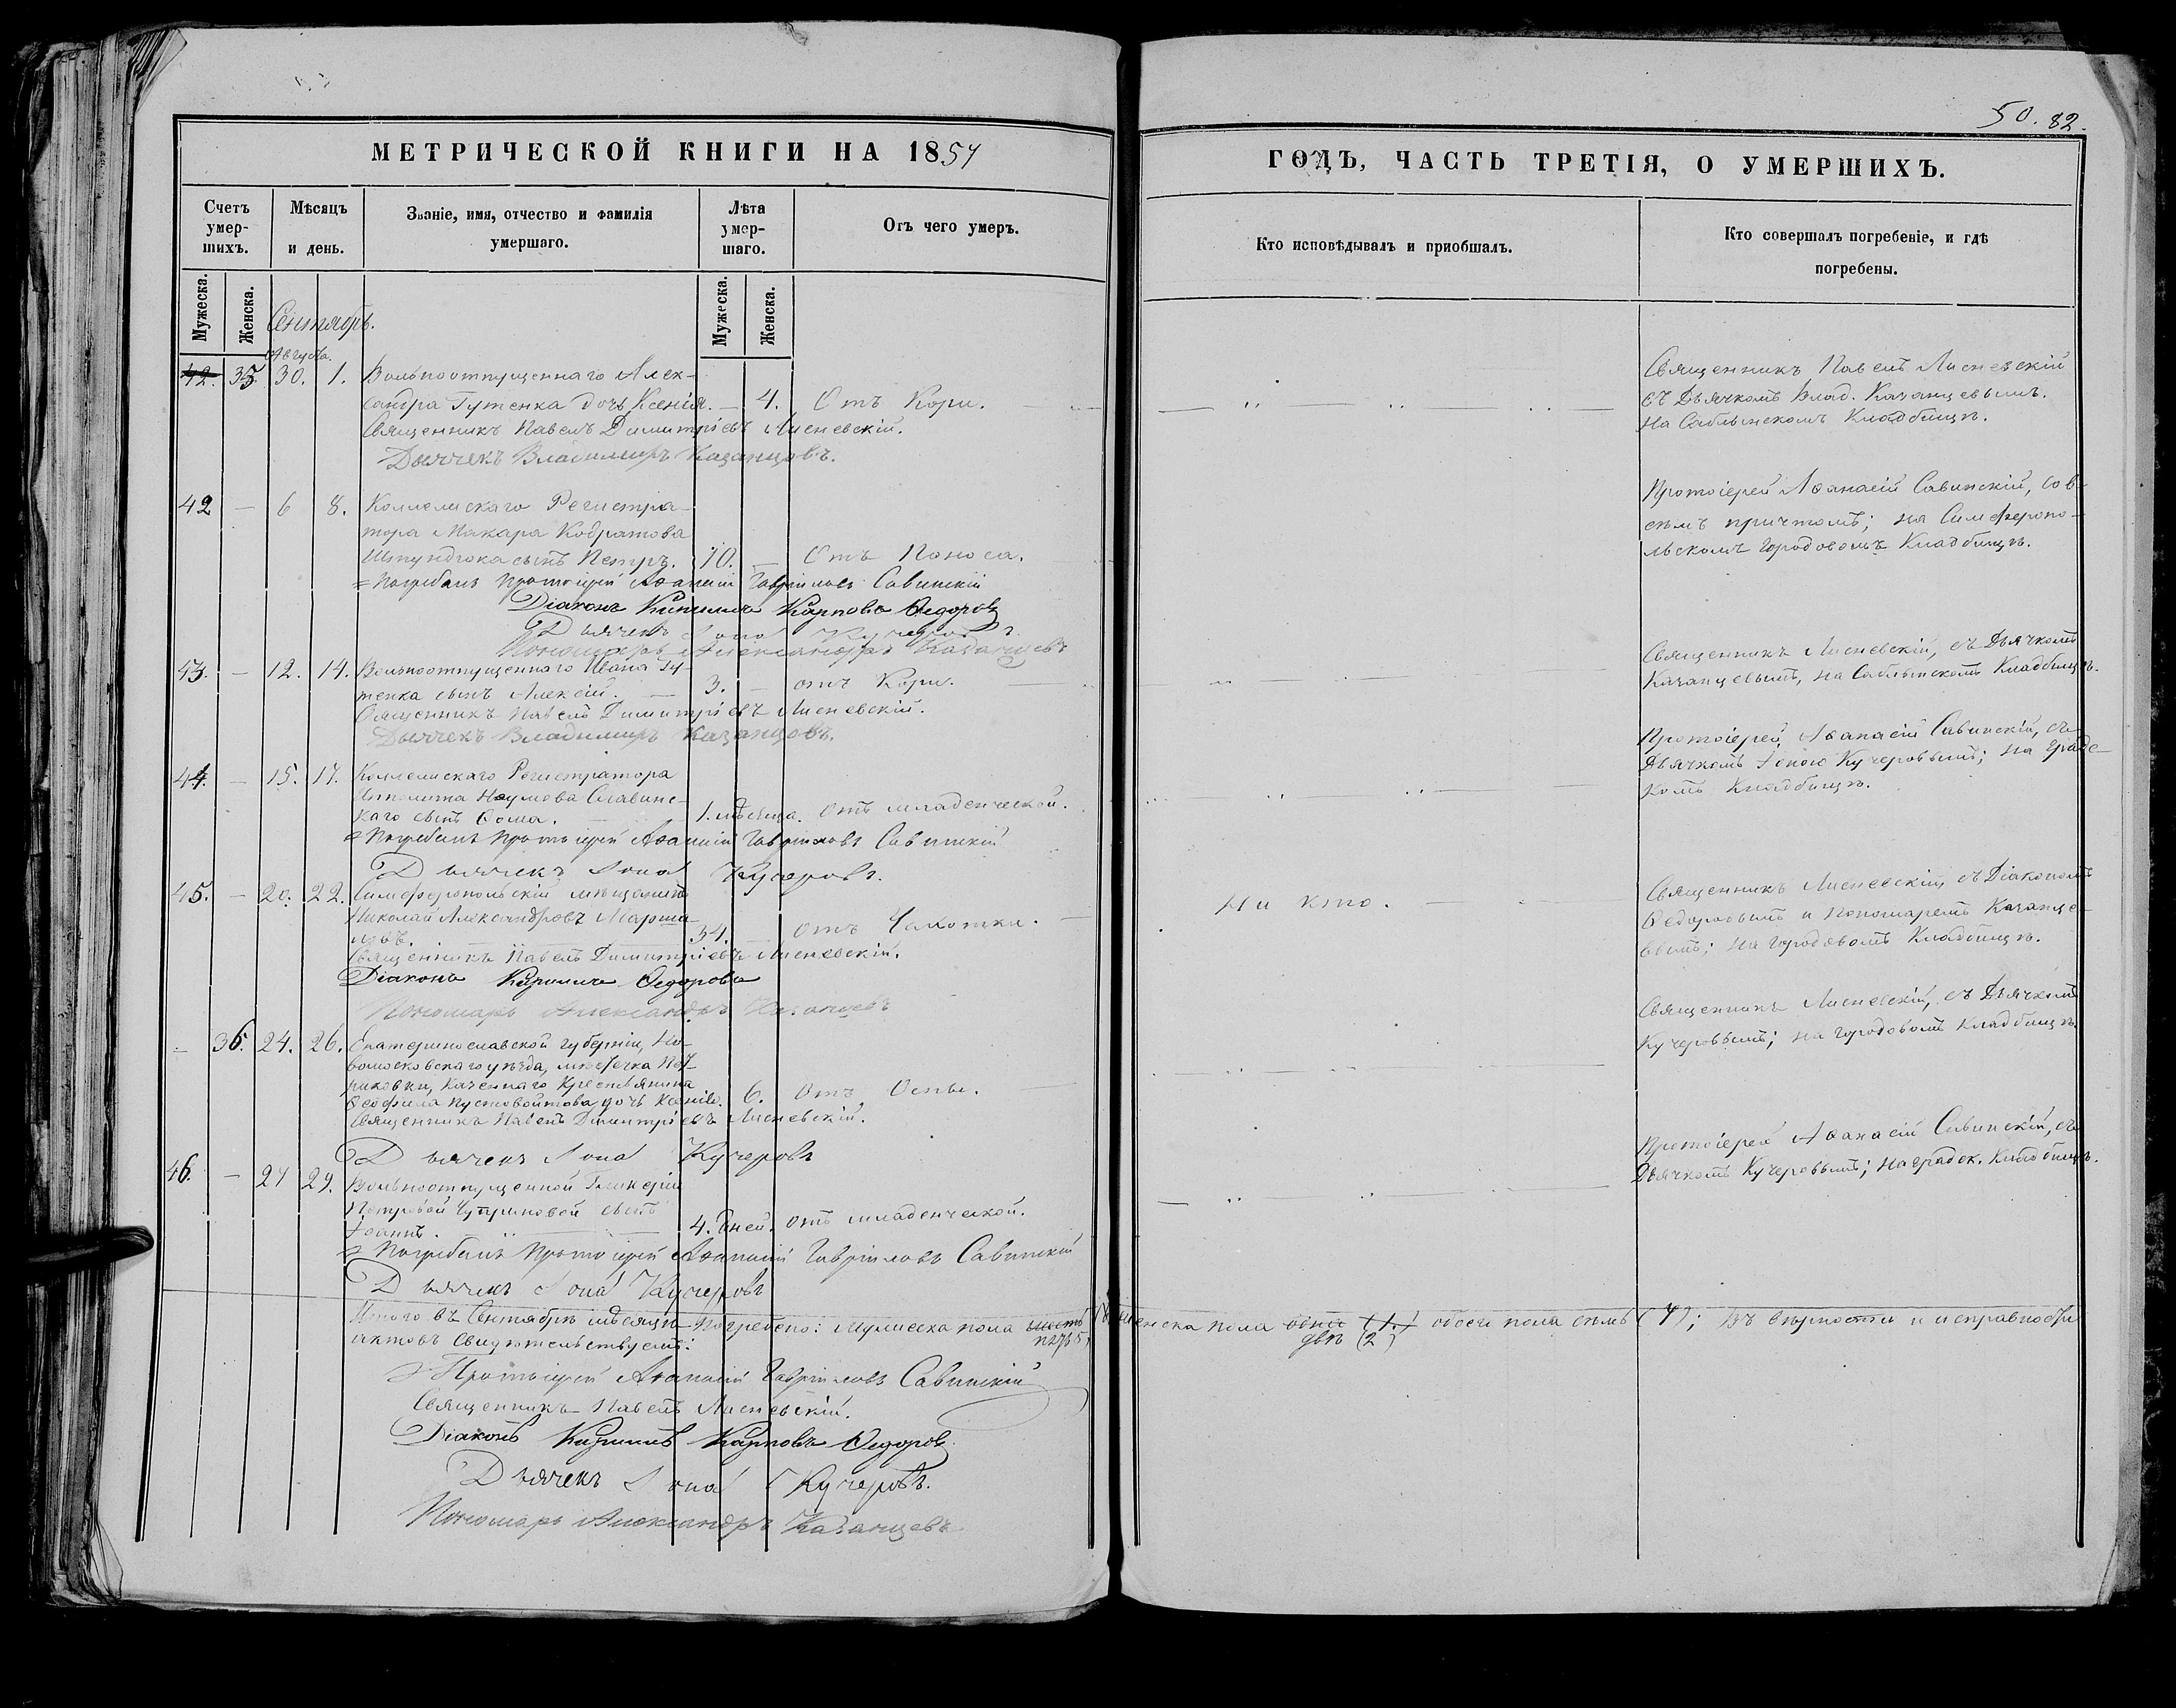 50. 82.
МЕТРИЧЕСКОЙ КНИГИ НА 1857
ГОДЪ, ЧАСТЬ ТРЕТІЯ, О УМЕРШИХЪ.
Счетъ умер-шихъ.
Мѣсяцъ и день.
Званіе, имя, отчество и фамилія умершаго.
Лѣта умер-шаго.
Отъ чего умеръ.
Кто исповѣдывалъ и пріобщалъ.
Кто совершалъ погребеніе, и гдѣ погребены.
Мужеска.
Женска.
Мужеска.
Женска.
Сентябрь.
Августа.
42. 35. 30. 1. Вольноотпущеннаго Алек-
сандра Гутенка дочь Ксенія. — 4. Отъ Кори.
Священникъ Павелъ Димитріевъ Лисневскій.
Дьячекъ Владимиръ Казанцовъ.
Священникъ Павелъ Лисневскій
съ Дьячкомъ Влад. Казанцевымъ.
На Саблынскомъ Кладбищѣ.
42 — 6 8. Коллежскаго Регистра-
тора Макара Кодратова
Шпундюка сынъ Петръ. 10. — Отъ Поноса.
Погребалъ Протоіерей Аѳанасій Гавріиловъ Савинскій
Діаконъ Кириллъ Карповъ Ѳедоровъ
Дьячекъ Іона Кучеровъ
Пономарь Александръ Казанцевъ
Протоіерей Аѳанасій Савинскій, со в-
сѣмъ причтомъ; на Симферопо-
льскомъ Городовомъ Кладбищѣ.
43. — 12. 14. Вольноотпущеннаго Ивана Гу-
тенка сынъ Алексій. — 3. — отъ Кори.
Священникъ Павелъ Димитріевъ Лисневскій.
Дьячекъ Владимиръ Казанцовъ.
Священникъ Лисневскій, съ Дьячкомъ
Казанцевымъ, на Саблынскомъ Кладбищѣ.
44. — 15. 17. Коллежскаго Регистратора
Ипполита Наумова Славинс-
каго сынъ Ѳома. 1. мѣсяца. Отъ младенческой.
Погребалъ Протоіерей Аѳанасій Гавріиловъ Савинскій
Дьячекъ Іона Кучеровъ.
Протоіерей Аѳанасій Савинскій, съ
Дьячкомъ Іоною Кучеровымъ; на Градс-
комъ Кладбищѣ.
45. — 20. 22. Симферопольскій мѣщанинъ
Николай Александровъ
34. — отъ Чахотки.
Священникъ Павелъ Димитріевъ Лисневскій.
Діаконъ Кириллъ Ѳедоровъ
Пономарь Александръ Казанцевъ
Ни кто.
Священникъ Лисневскій, съ Діакономъ
Ѳедоровымъ и Пономаремъ Казанце-
вымъ; на Городовомъ Кладбищѣ.
— 36. 24. 26. Екатеринославской Губерніи, Но-
вомосковскаго уѣзда, мѣстечка Пет-
риковки, Казеннаго Крестьянина
Ѳеофила Пустовойтова дочь Ксенія. 6. Отъ Оспы.
Священникъ Павелъ Димитріевъ Лисневскій.
Дьячекъ Іона Кучеровъ
Священникъ Лисневскій, съ Дьячкомъ
Кучеровымъ; на Городовомъ Кладбищѣ.
46. — 27 29. Вольноотпущенной Гликеріи
Петровой сынъ
Іоаннъ. 4. дней. отъ младенческой.
Погребалъ Протоіерей Аѳанасій Гавріиловъ Савинскій
Дьячекъ Іона Кучеровъ
Протоіерей Аѳанасій Савинскій, съ
Дьячкомъ Кучеровымъ; на градск. Кладбищѣ.
Итого въ Сентябрѣ мѣсяцѣ погребено: Мужеска пола шесть Женска пола одна (1.) обоего пола семь (7); Въ вѣрности и исправности
пять 5, двѣ (2)
актовъ свидѣтельствуемъ:
Протоіерей Аѳанасій Гавріиловъ Савинскій
Священникъ Павелъ Лисневскій.
Діаконъ Кириллъ Карповъ Ѳедоровъ
Дьячекъ Іона Кучеровъ.
Пономарь Александръ Казанцевъ